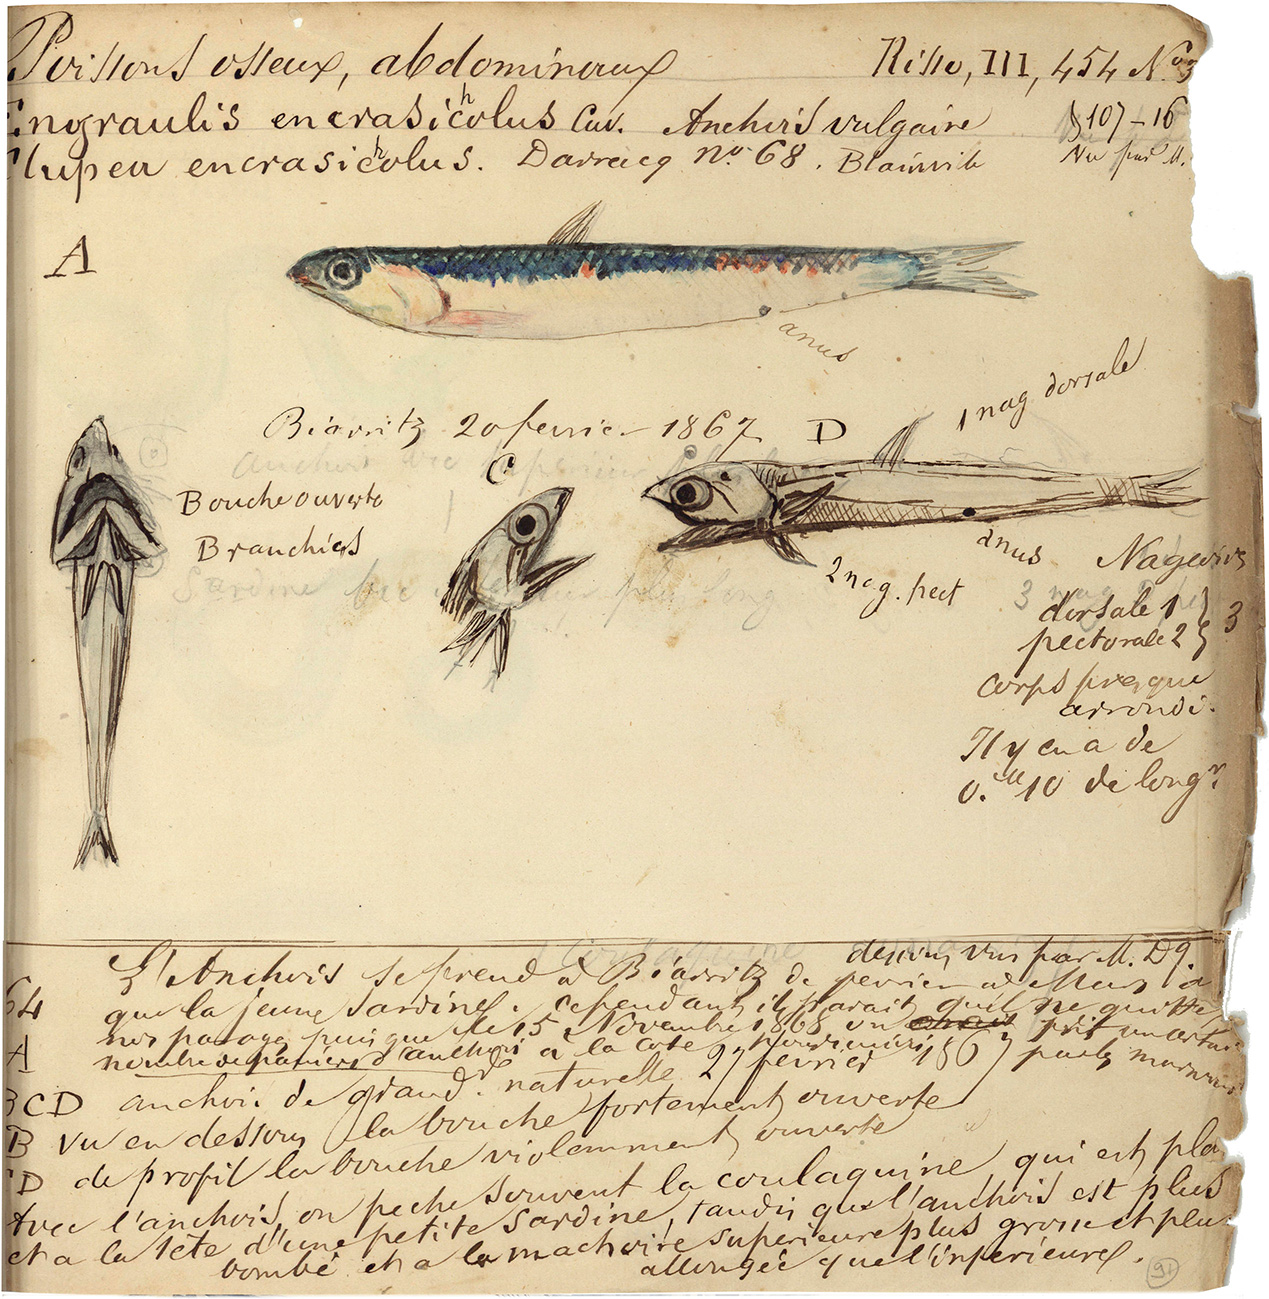 Poissons osseux, abdominaux Risso, III, 454 No 3
Engraulis encrasicholus Cuv. Anchois vulgaire 107-16
Clupea encrasicholus. Darracq no. 68. Blainville Vu par M.
A
anus
Biarritz 20 fevrier 1867 D
1 nag dorsale
C
Bouche ouverte
Branchies
anus
2 nag. pect
Nageoires
dorsale 1 } 3
pectorale 2
corps presque
arrondi.
Il y en a de
0.m 10 de longr
dessous, vus par M. Dq.
L'Anchois se prend à Biarritz de fevrier
64 que la jeune Sardine. Cependant il parait qu'il ne quitte
nos parages puisque le 15 Novembre 1868 on prit un certain
A nombre de paniers d'anchois à la cote
BCD anchois de grandr naturelle 27 fevrier 1867
B vu en dessous la bouche fortement ouverte
CD de profil la bouche violemment ouverte
Avec l'anchois, on peche souvent la coulaquine, qui est
et a la tête d'une petite Sardine, tandis que l'anchois est plus
bombé et a la machoire superieure plus grosse et plus
allongée que l'inferieure.
91